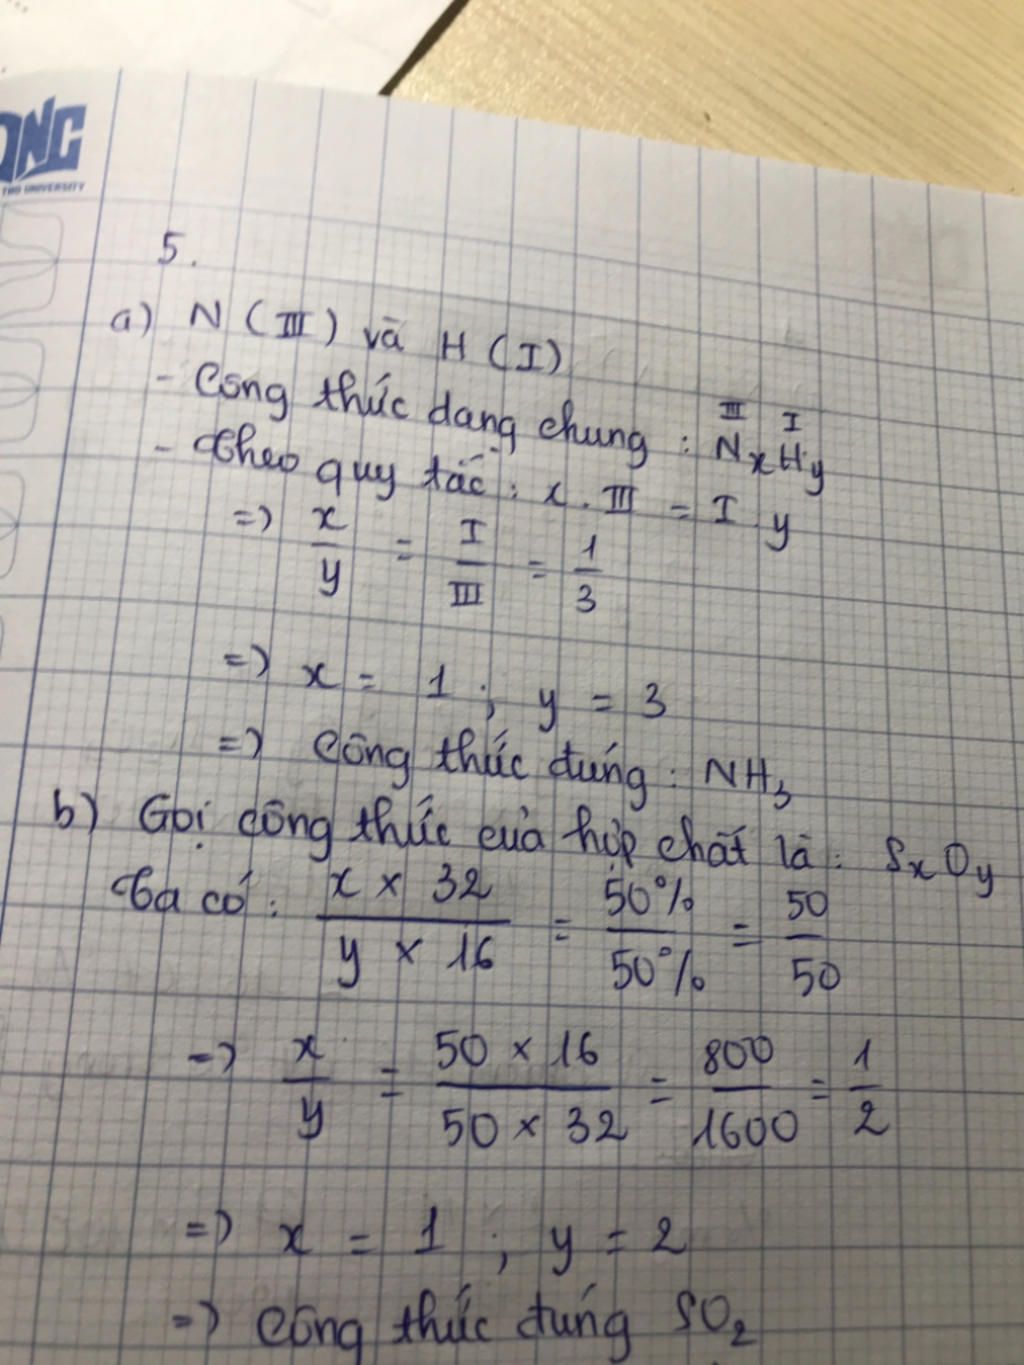 ONG
THO UNIVERSITY
5.
a) N (III) và H (I)
- Công thức dạng chung : NxHy
III I
- Theo quy tắc : x . III = I y
=> x/y = I/III = 1/3
=> x = 1 ; y = 3
=> Công thức đúng : NH3
b) Gọi công thức của hợp chất là : SxOy
Ta có : x × 32 / y × 16 = 50% / 50% = 50/50
=> x/y = 50 × 16 / 50 × 32 = 800/1600 = 1/2
=> x = 1 ; y = 2
=> Công thức đúng SO2